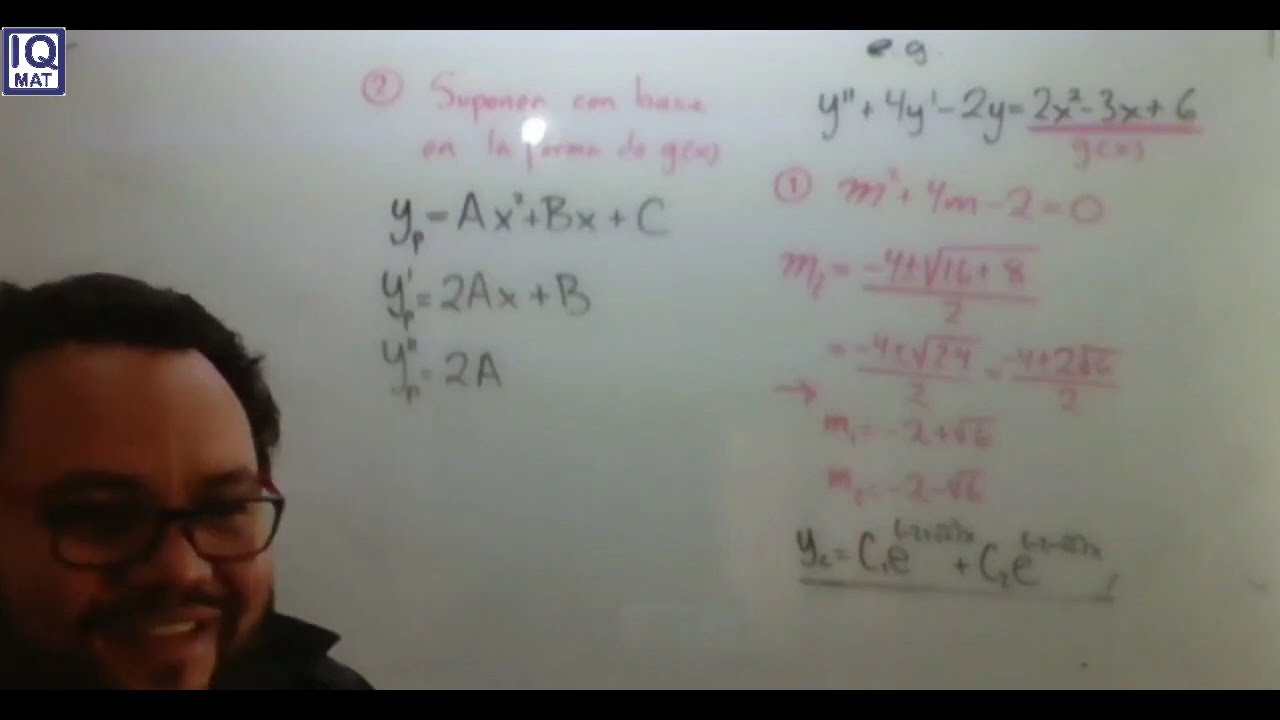 IQ
MAT
② Suponer con base
en la forma de g(x)
yₚ = Ax² + Bx + C
y'ₚ = 2Ax + B
y''ₚ = 2A
e.g.
y'' + 4y' - 2y = 2x² - 3x + 6
g(x)
① m² + 4m - 2 = 0
m₁ = (-4 ± √(16 + 8)) / 2
= (-4 ± √24) / 2 = (-4 ± 2√6) / 2
→ m₁ = -2 + √6
m₂ = -2 - √6
y_c = C₁e^((-2+√6)x) + C₂e^((-2-√6)x)